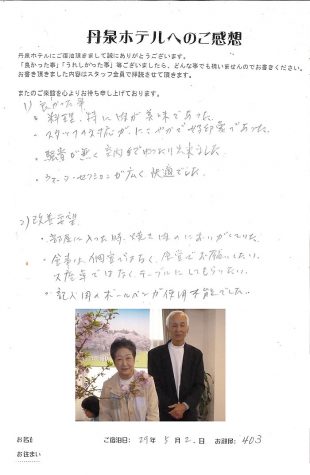 丹泉ホテルへのご感想
丹泉ホテルにご宿泊頂きまして誠にありがとうございます。
「良かった事」「うれしかった事」等ございましたら、どんな事でも構いませんのでお書きください。
お書き頂きました内容はスタッフ全員で拝読させて頂きます。
またのご来館を心よりお待ち申し上げております。
1) 良かった事
・料理、特に肉が美味であった。
・スタッフの対応が、にこやかで好印象であった。
・騒音が無く
・が広く快適でした。
2) 改善要望
・部屋に入った時、焼き肉のにおいがしていた。
・食事は個室ではなく、食堂でお願いしたい。
ではなくテーブルにしてもらいたい。
・記入用のボールペンが使用不能でした。
お名前
ご宿泊日: 29年 5月 2.日 お部屋: 403
お住まい